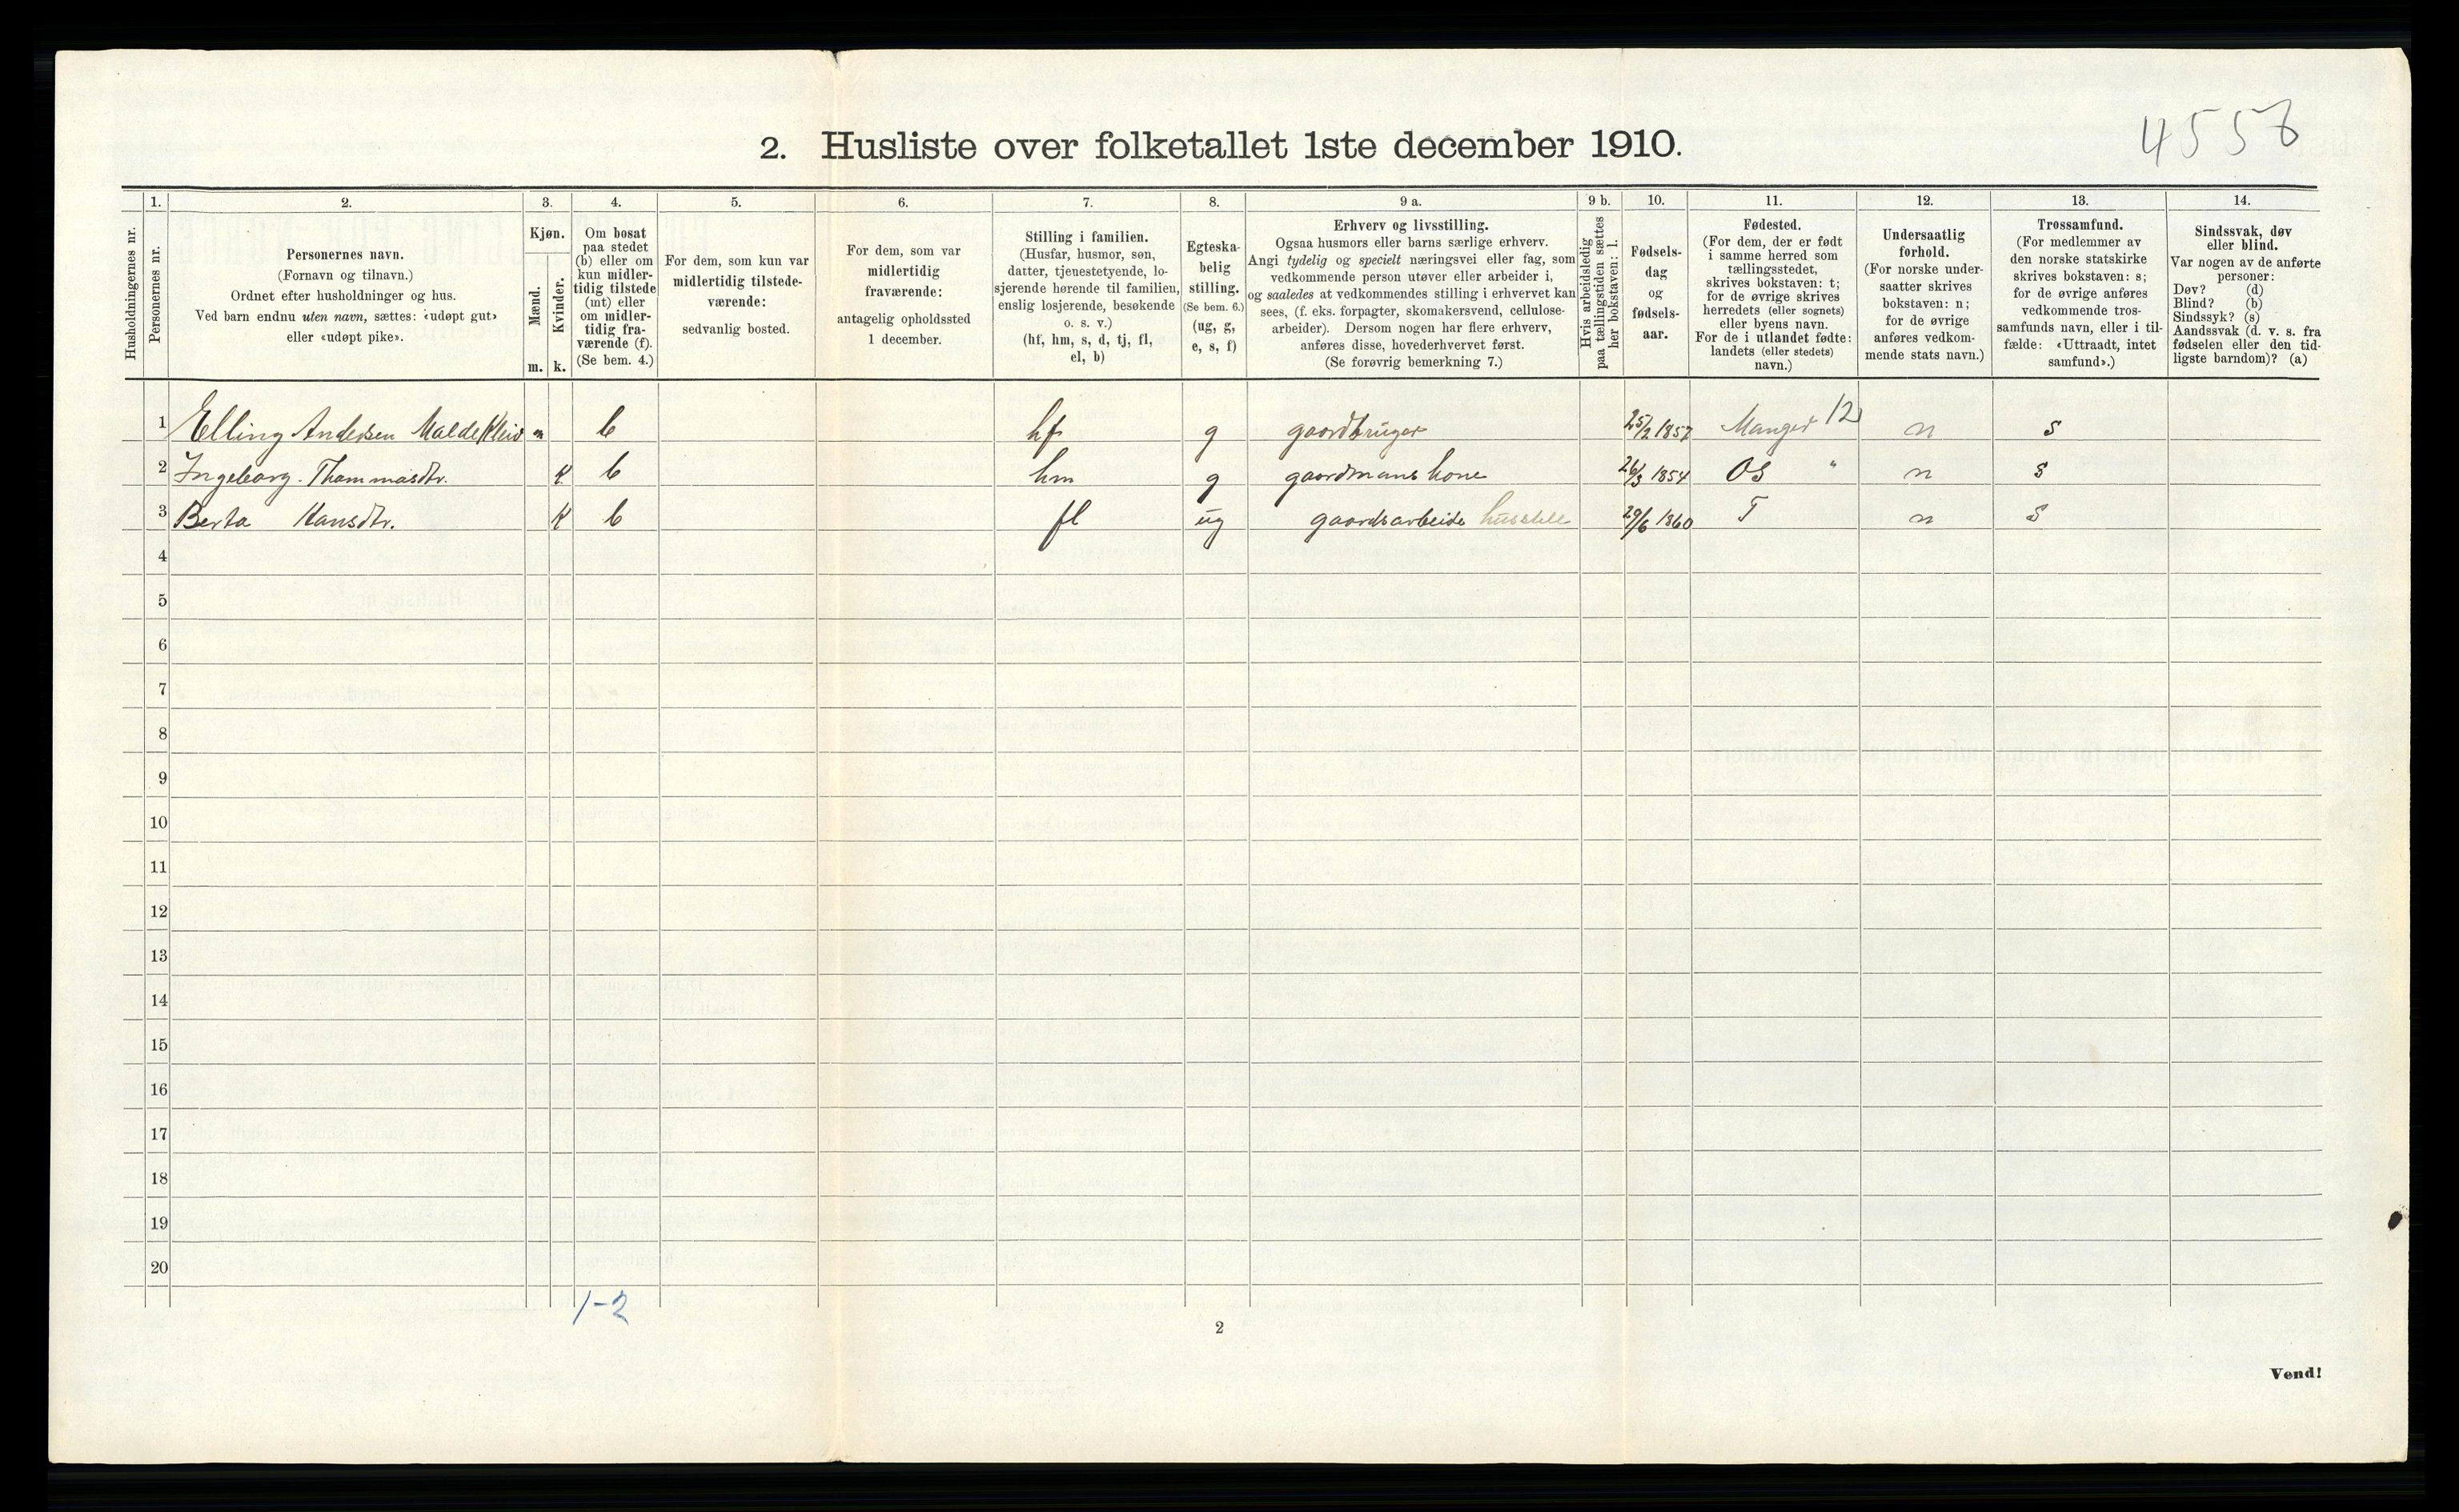 4558
2. Husliste over folketallet 1ste december 1910.
Husholdningernes nr.
1.
Personernes nr.
2.
Personernes navn.
(Fornavn og tilnavn.)
Ordnet efter husholdninger og hus.
Ved barn endnu uten navn, sættes: «udøpt gut»
eller «udøpt pike».
3.
Kjøn.
Mænd.
Kvinder.
m. k.
4.
Om bosat
paa stedet
(b) eller om
kun midler-
tidig tilstede
(mt) eller
om midler-
tidig fra-
værende (f).
(Se bem. 4.)
5.
For dem, som kun var
midlertidig tilstede-
værende:
sedvanlig bosted.
6.
For dem, som var
midlertidig
fraværende:
antagelig opholdssted
1 december.
7.
Stilling i familien.
(Husfar, husmor, søn,
datter, tjenestetyende, lo-
sjerende hørende til familien,
enslig losjerende, besøkende
o. s. v.)
(hf, hm, s, d, tj, fl,
el, b)
8.
Egteska-
belig
stilling.
(Se bem. 6.)
(ug, g,
e, s, f)
9 a.
Erhverv og livsstilling.
Ogsaa husmors eller barns særlige erhverv.
Angi tydelig og specielt næringsvei eller fag, som
vedkommende person utøver eller arbeider i,
og saaledes at vedkommendes stilling i erhvervet kan
sees, (f. eks. forpagter, skomakersvend, cellulose-
arbeider). Dersom nogen har flere erhverv,
anføres disse, hovederhvervet først.
(Se forøvrig bemerkning 7.)
9 b.
Hvis arbeidsledig
paa tællingstiden sættes
her bokstaven: l.
10.
Fødsels-
dag
og
fødsels-
aar.
11.
Fødested.
(For dem, der er født
i samme herred som
tællingsstedet,
skrives bokstaven: t;
for de øvrige skrives
herredets (eller sognets)
eller byens navn.
For de i utlandet fødte:
landets (eller stedets)
navn.)
12.
Undersaatlig
forhold.
(For norske under-
saatter skrives
bokstaven: n;
for de øvrige
anføres vedkom-
mende stats navn.)
13.
Trossamfund.
(For medlemmer av
den norske statskirke
skrives bokstaven: s;
for de øvrige anføres
vedkommende tros-
samfunds navn, eller i til-
fælde: «Uttraadt, intet
samfund».)
14.
Sindssvak, døv
eller blind.
Var nogen av de anførte
personer:
Døv? (d)
Blind? (b)
Sindssyk? (s)
Aandssvak (d. v. s. fra
fødselen eller den tid-
ligste barndom)? (a)
1 Elling Andersen Maldekleiv m b hf g gaardbruger 25/2 1857 Manger 12 n s
2 Ingeborg Thommasdtr. K b hm g gaardmans kone 26/3 1854 Os " n s
3 Berta Hansdtr. K b fl ug gaardsarbeide husstel 29/6 1860 T n s
4
5
6
7
8
9
10
11
12
13
14
15
16
17
18
19
20
1-2
2
Vend!